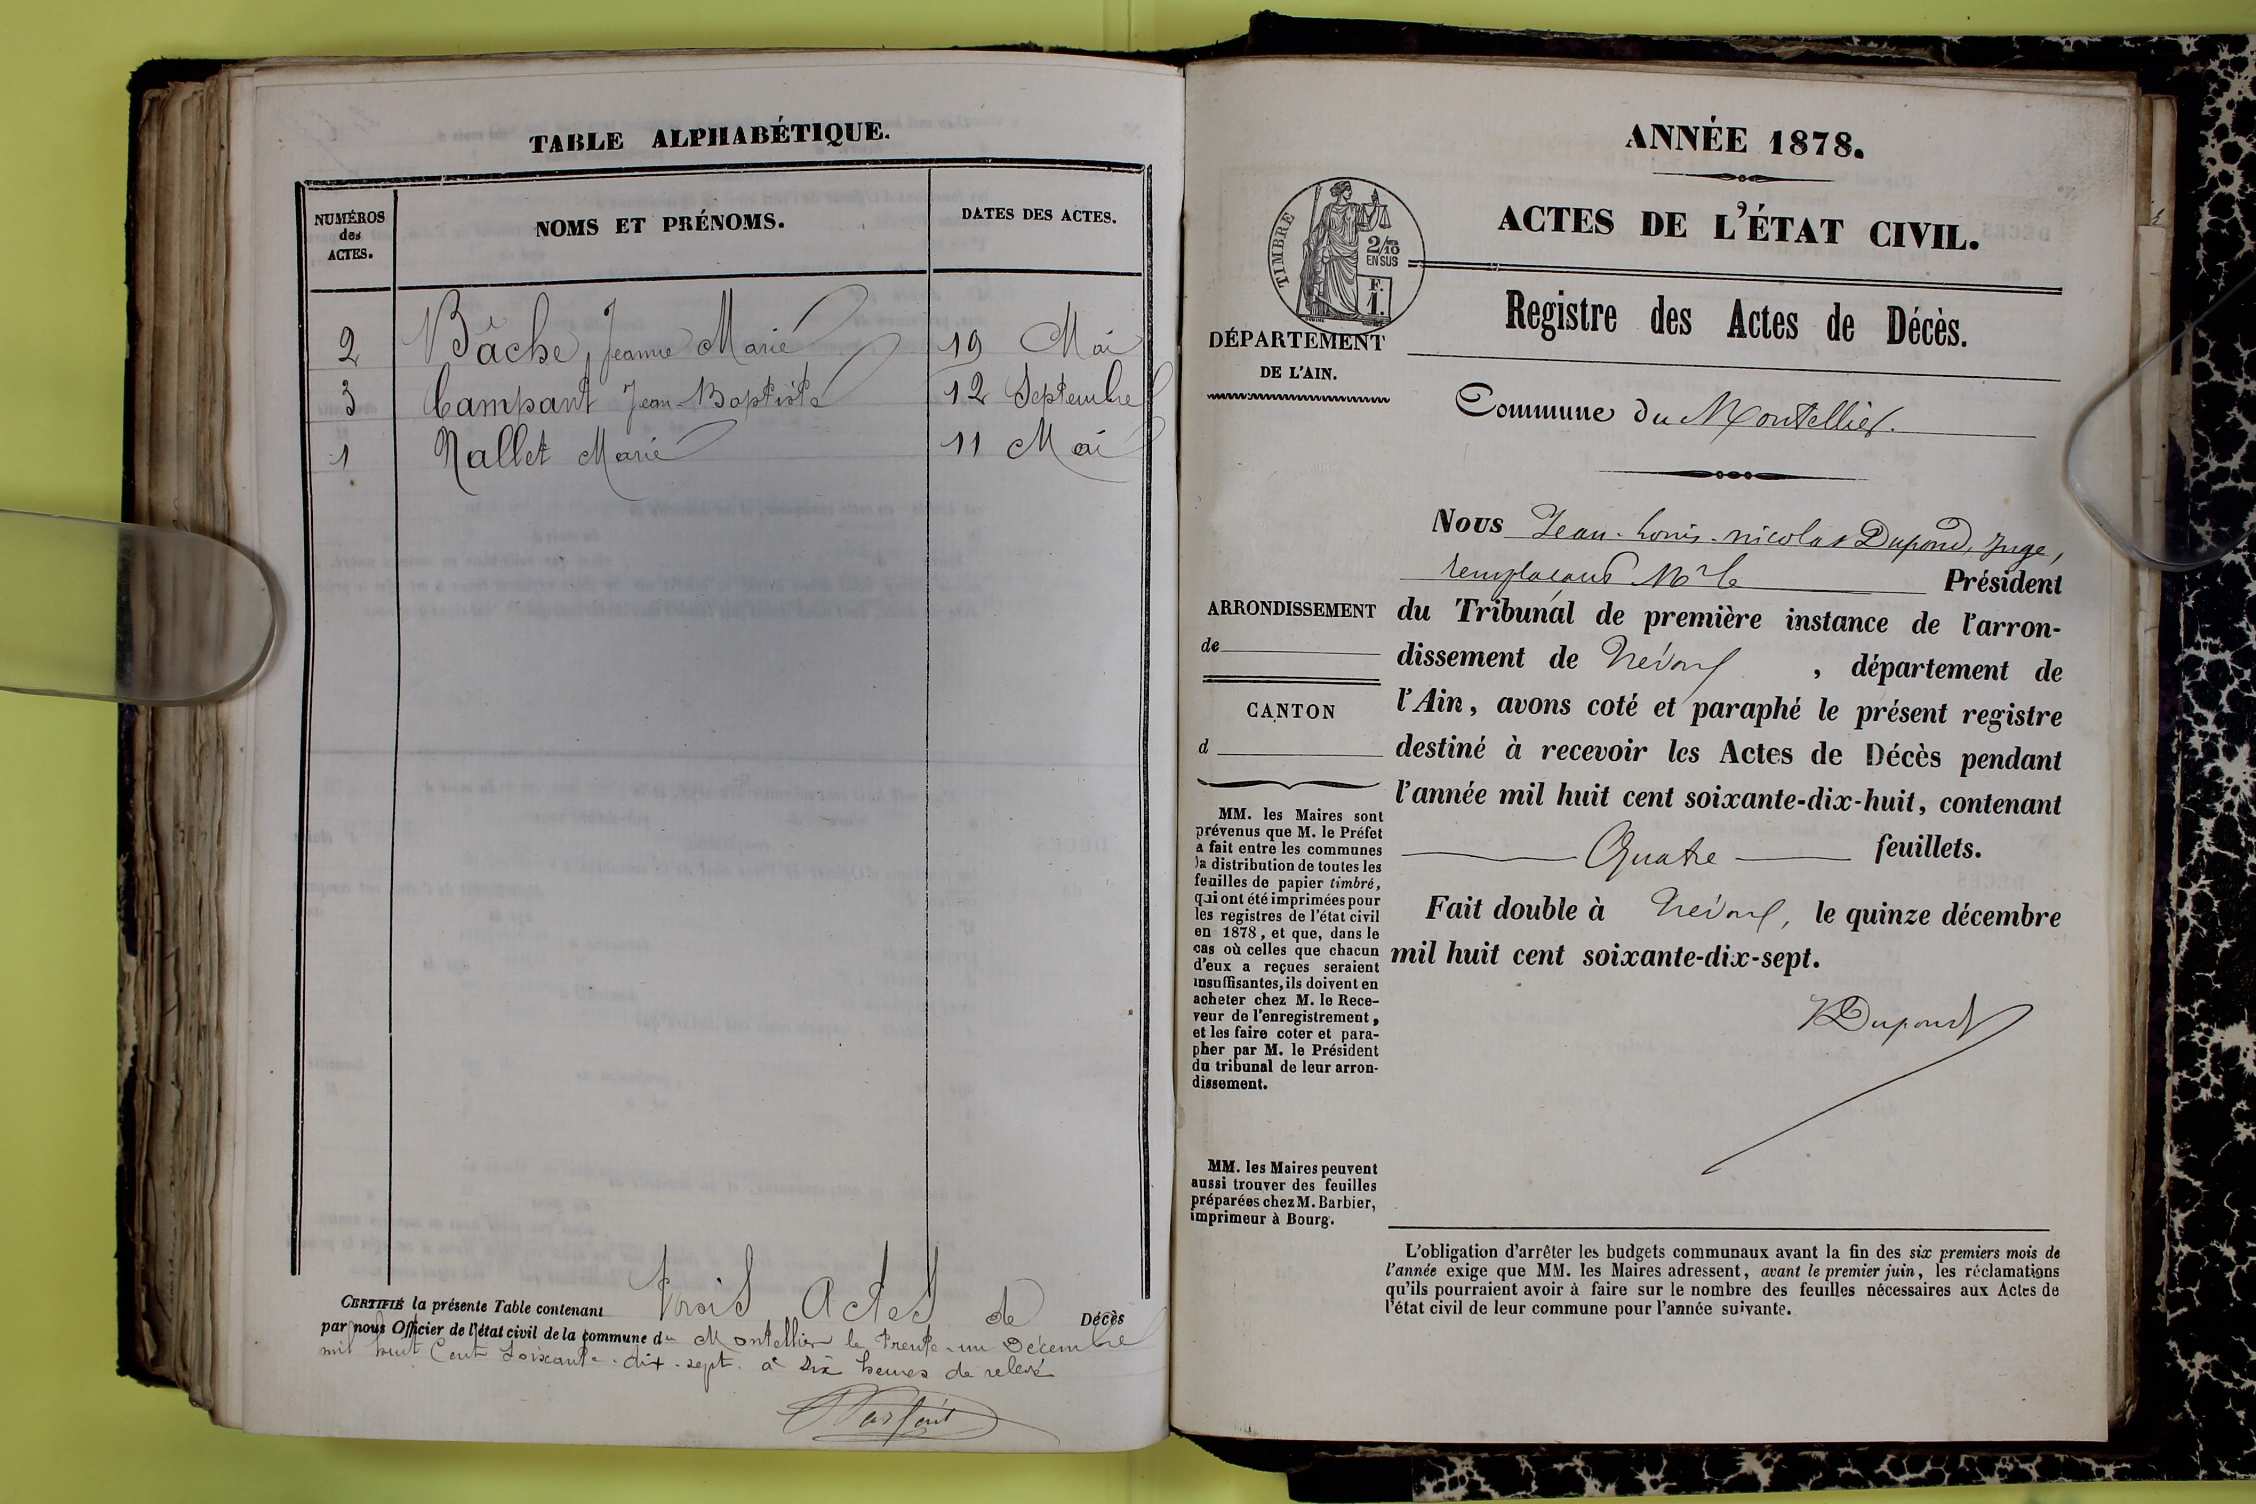 TABLE ALPHABÉTIQUE.
NUMÉROS des ACTES.
NOMS ET PRÉNOMS.
DATES DES ACTES.
2 Bâche, Jeanne Marie 19 Mai
3 Campant Jean-Baptiste 12 Septembre
1 Nallet Marie 11 Mai
CERTIFIÉ la présente Table contenant trois Actes de Décès
par nous Officier de l'état civil de la commune du Montellier le trente-un Décembre
mil huit Cent soixante-dix-sept à Six heures de relevé
ANNÉE 1878.
ACTES DE L'ÉTAT CIVIL.
TIMBRE
2/10
EN SUS
F.
1.
Registre des Actes de Décès.
DÉPARTEMENT
DE L'AIN.
Commune du Montellier.
Nous Jean-Louis-nicolas Dupond, Juge,
remplaçant Mr le Président
du Tribunal de première instance de l'arron-
dissement de Trévoux, département de
l'Ain, avons coté et paraphé le présent registre
destiné à recevoir les Actes de Décès pendant
l'année mil huit cent soixante-dix-huit, contenant
Quatre feuillets.
Fait double à Trévoux, le quinze décembre
mil huit cent soixante-dix-sept.
Dupond
ARRONDISSEMENT
de
CANTON
d
MM. les Maires sont
prévenus que M. le Préfet
a fait entre les communes
la distribution de toutes les
feuilles de papier timbré,
qui ont été imprimées pour
les registres de l'état civil
en 1878, et que, dans le
cas où celles que chacun
d'eux a reçues seraient
insuffisantes, ils doivent en
acheter chez M. le Rece-
veur de l'enregistrement,
et les faire coter et para-
pher par M. le Président
du tribunal de leur arron-
dissement.
MM. les Maires peuvent
aussi trouver des feuilles
préparées chez M. Barbier,
imprimeur à Bourg.
L'obligation d'arrêter les budgets communaux avant la fin des six premiers mois de
l'année exige que MM. les Maires adressent, avant le premier juin, les réclamations
qu'ils pourraient avoir à faire sur le nombre des feuilles nécessaires aux Actes de
l'état civil de leur commune pour l'année suivante.